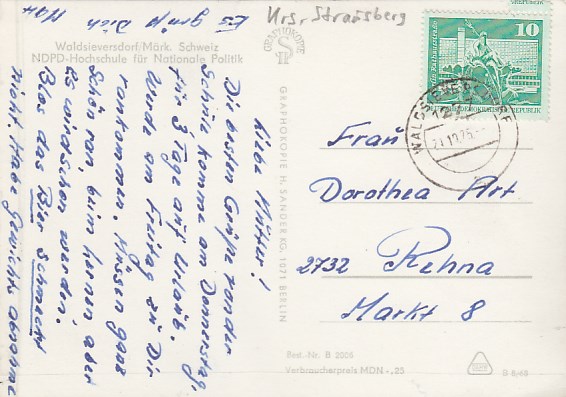 Krs. Strausberg
Waldsieversdorf/Märk. Schweiz
NDPD-Hochschule für Nationale Politik
GRAPHOKOPIE
Liebe Mutter!
Die besten Grüße von der
Schule komme am Donnerstag,
für 3 Tage auf Urlaub.
Werde am Freitag zu Dir
rankommen. Müssen ganz
schön ran, beim lernen aber
es wird schon werden.
Blos das Bier schmeckt
nicht. Habe Gewicht abnehme
Es grüßt Dich
GRAPHOKOPIE H. SANDER KG, 1071 BERLIN
10
DEUTSCHE DEMOKRATISCHE REPUBLIK
WALDSIEVERSDORF
21.10.75
Frau
Dorothea Art
2732 Rehna
Markt 8
Best.-Nr. B 2006
Verbraucherpreis MDN -,25